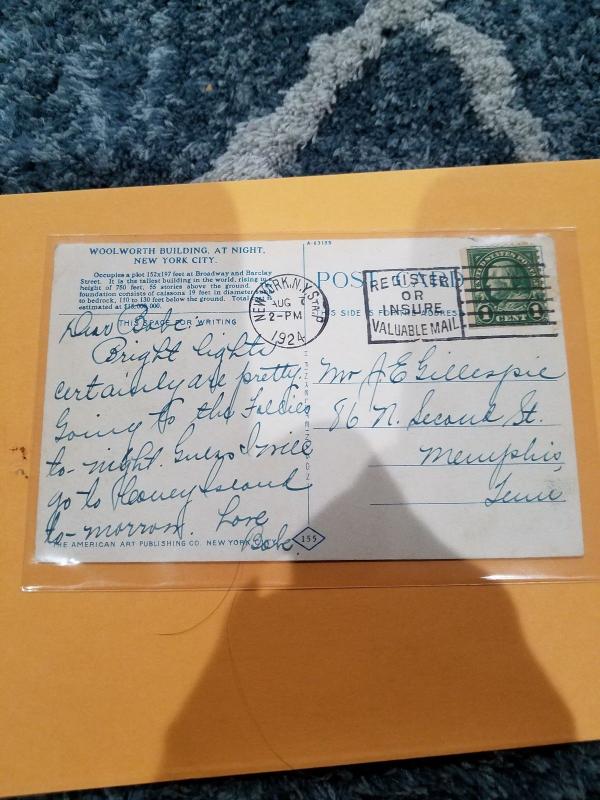 WOOLWORTH BUILDING, AT NIGHT,
NEW YORK CITY.
Occupies a plot 152x197 feet at Broadway and Barclay
Street. It is the tallest building in the world, rising
height of 750 feet, 55 stories above the ground.
foundation consists of caissons 19 feet in diameter
to bedrock, 110 to 130 feet below the ground. Total
estimated at
THIS SPACE FOR WRITING
Dear
Bright lights
certainly are pretty.
Going to the Follies
to-night. Guess I will
go to Coney Island
to-morrow. Love
Bob.
THE AMERICAN ART PUBLISHING CO. NEW YORK CITY.
155
A-63195
POST CARD
THIS SIDE IS FOR THE ADDRESS
NEW YORK, N.Y.
AUG 7
2-PM
1924
REGISTER
OR
INSURE
VALUABLE MAIL
UNITED STATES POSTAGE
1 CENT 1
Mr J. E. Gillespie
86 N. Second St.
Memphis,
Tenn